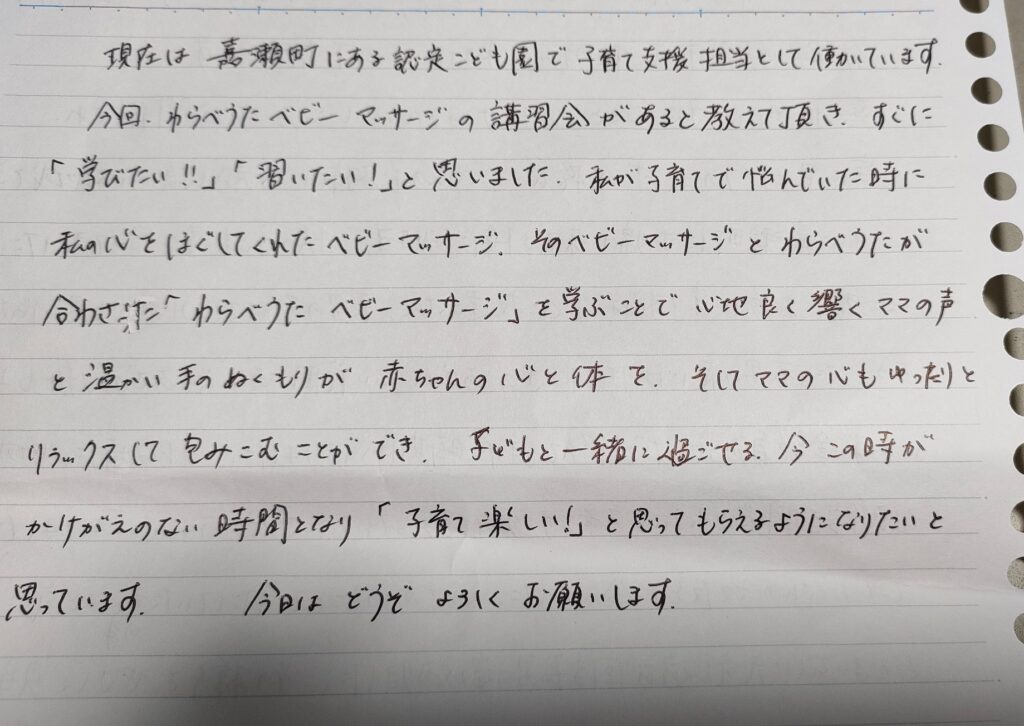 現在は 嘉瀬町にある認定こども園で子育て支援担当として働いています.
今回、わらべうたベビーマッサージの講習会があると教えて頂き、すぐに
「学びたい!!」「習いたい!」と思いました. 私が子育てで悩んでいた時に
私の心をほぐしてくれたベビーマッサージ. そのベビーマッサージとわらべうたが
合わさった「わらべうた ベビーマッサージ」を学ぶことで心地良く響くママの声
と温かい手のぬくもりが 赤ちゃんの心と体を、そしてママの心もゆったりと
リラックスして包みこむことができ、子どもと一緒に過ごせる、今この時が
かけがえのない時間となり「子育て楽しい!」と思ってもらえるようになりたいと
思っています. 今日はどうぞよろしくお願いします.